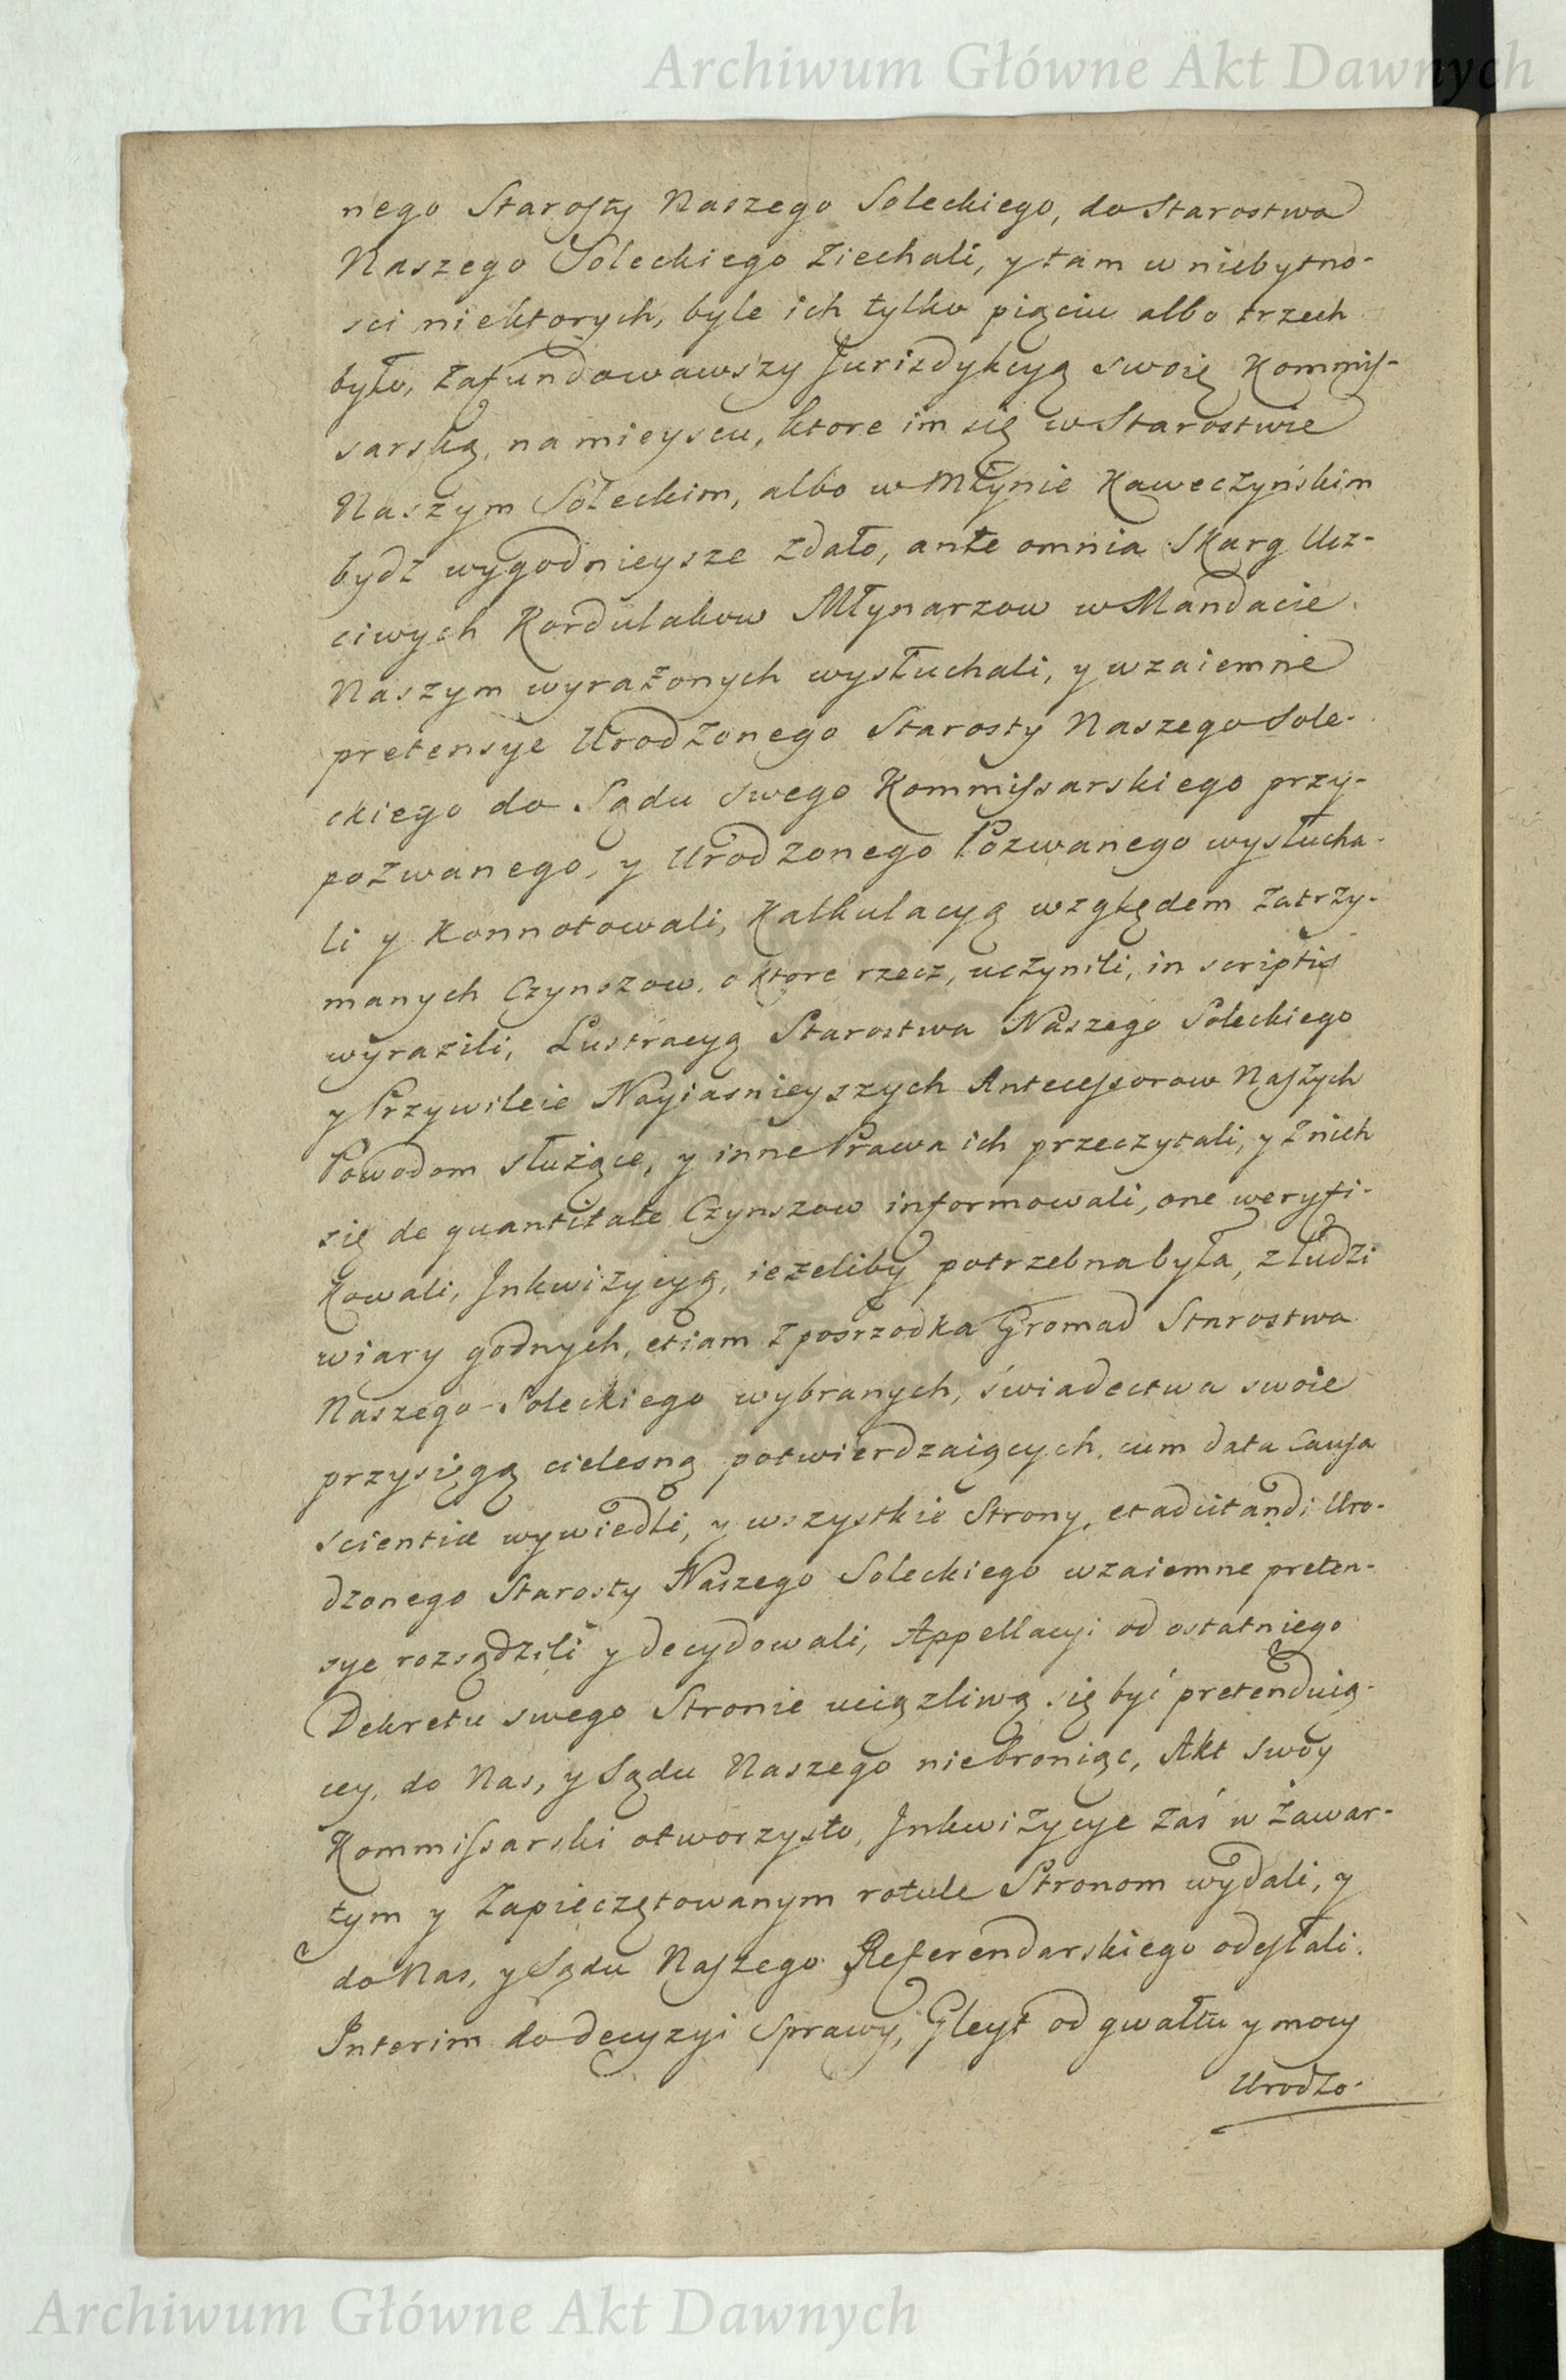 Archiwum Główne Akt Dawnych
nego Starosty Naszego Soleckiego, do Starostwa
Naszego Soleckiego Ziechali, y tam w niebytno-
sci niektorych, byle ich tylko pięciu albo trzech
było, Zafundowawszy Jurizdykcyą swoię Kommis-
sarską, na mieyscu, ktore im się w Starostwie
Naszym Soleckim, albo w Młynie Kaweczyńskim
bydź wygodnieysze zdało, ante omnia Skarg Ucz-
ciwych Kordulakow Młynarzow w Mandacie
Naszym wyrażonych wysłuchali, y wzaiemne
pretensye Urodzonego Starosty Naszego Sole-
ckiego do Sądu swego Kommissarskiego przy-
pozwanego, y Urodzonego Pozwanego wysłucha-
li y Konnotowali, Kalkulacyą względem Zatrzy-
manych Czynszow, o ktore rzecz, uczynili, in scriptis
wyrazili, Lustracyą Starostwa Naszego Soleckiego
y Przywileie Nayiasnieyszych Antecessorow Naszych
Powodom służące, y inne Prawa ich przeczytali, y z nich
się de quantitate Czynszow informowali, one weryfi-
Kowali, Inkwizycyą, ieżeliby potrzebna była, z ludzi
wiary godnych, etiam z posrzodka Gromad Starostwa
Naszego Soleckiego wybranych, świadectwa swoie
przysięgą cielesną potwierdzaiących, cum data Causa
scientiæ wywiedli, y wszystkie Strony, et adcitandi Uro-
dzonego Starosty Naszego Soleckiego wzaiemne preten-
sye rozsądzili y decydowali, Appellacyi od ostatniego
Dekretu swego Stronie uciązliwą się być pretenduią-
cey, do Nas, y Sądu Naszego niebroniąc, Akt Swoy
Kommissarski otworzysto, Inkwizycye Zaś w Zawar-
tym y Zapieczętowanym rotule Stronom wydali, y
do Nas, y Sądu Naszego Referendarskiego odesłali.
Interim do decyzyi Sprawy, Gleyt od gwałtu y mocy
Urodzo-
Archiwum Główne Akt Dawnych